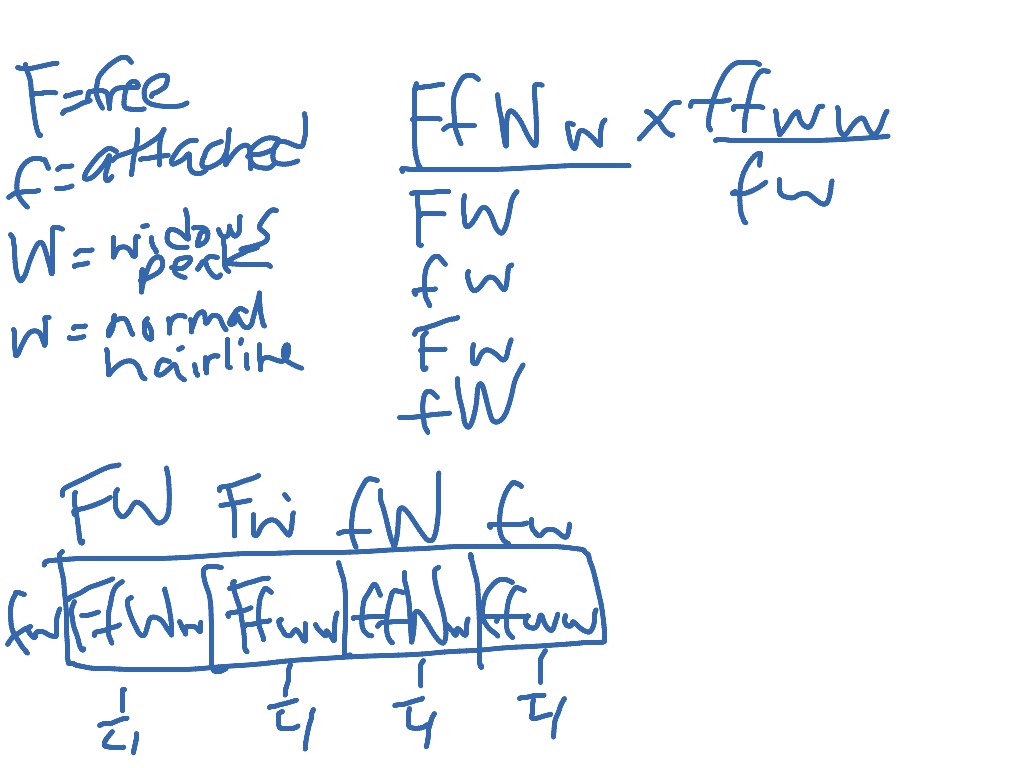 F=free
f=attached
W=widows
peak
w=normal
hairline
FfWw x ffww
FW fw
fw
Fw
fW
FW Fw fW fw
fw FfWw Ffww ffWw ffww